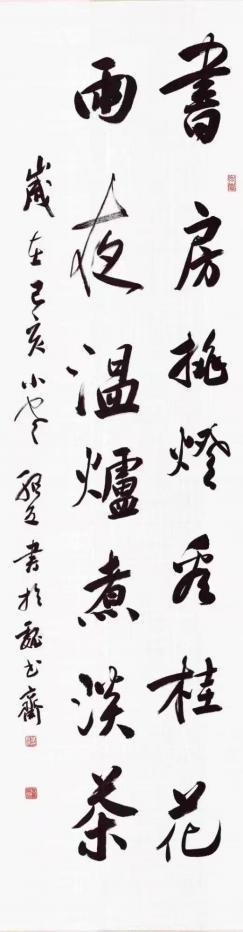 書房挑燈看桂花
雨夜溫爐煮淡茶
歲在己亥小雪 書於 齋